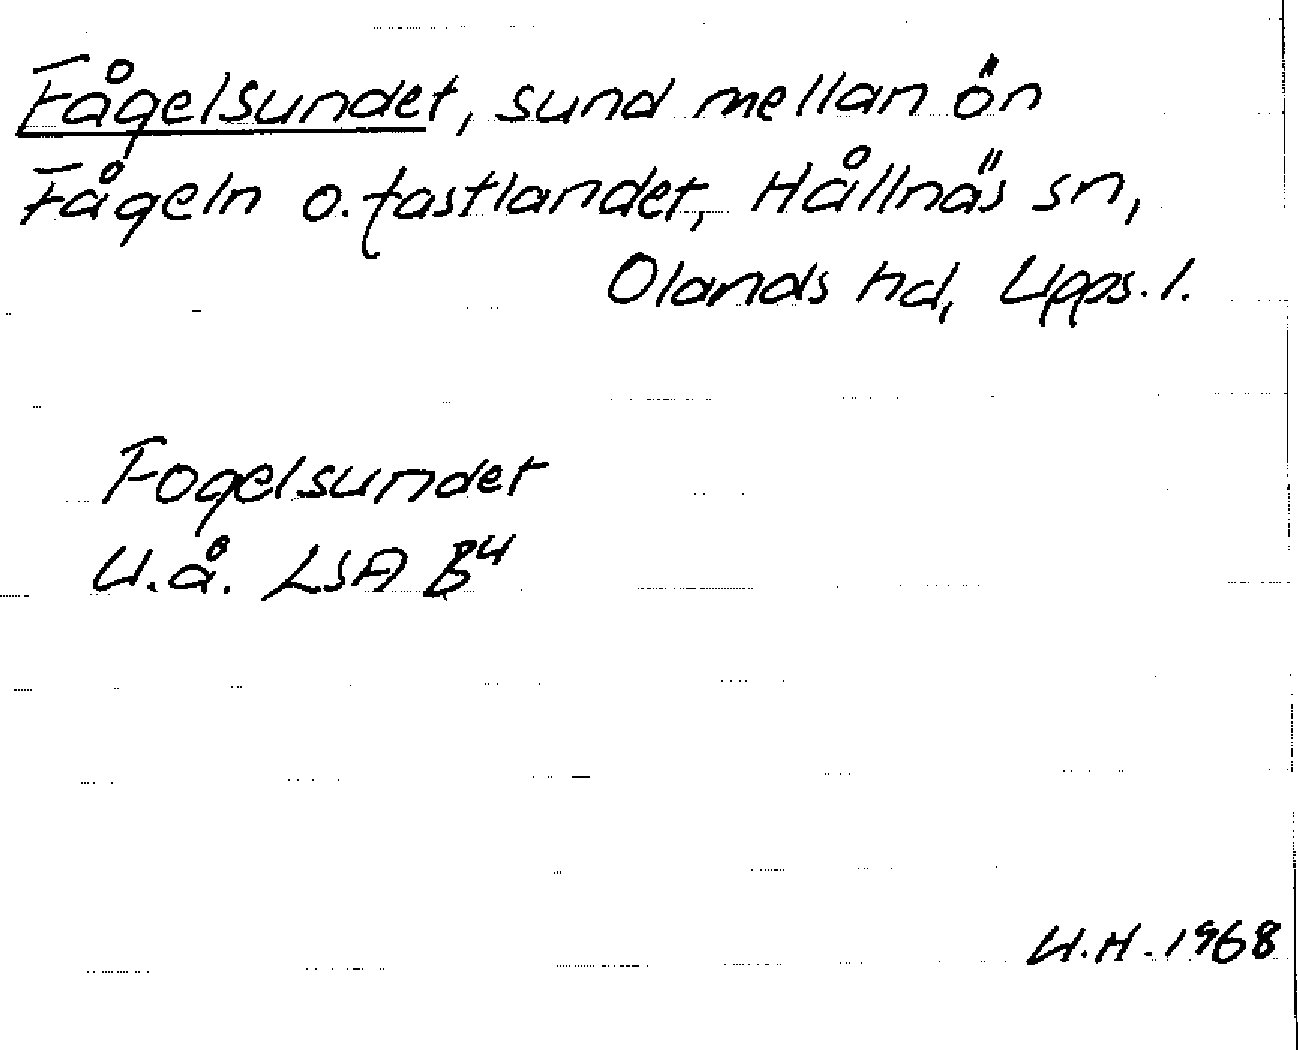 Fågelsundet, sund mellan ön
Fågeln o. fastlandet, Hållnäs sn,
Olands hd, Upps. l.
Fogelsundet
U.å. LSA B⁴
U.H. 1968